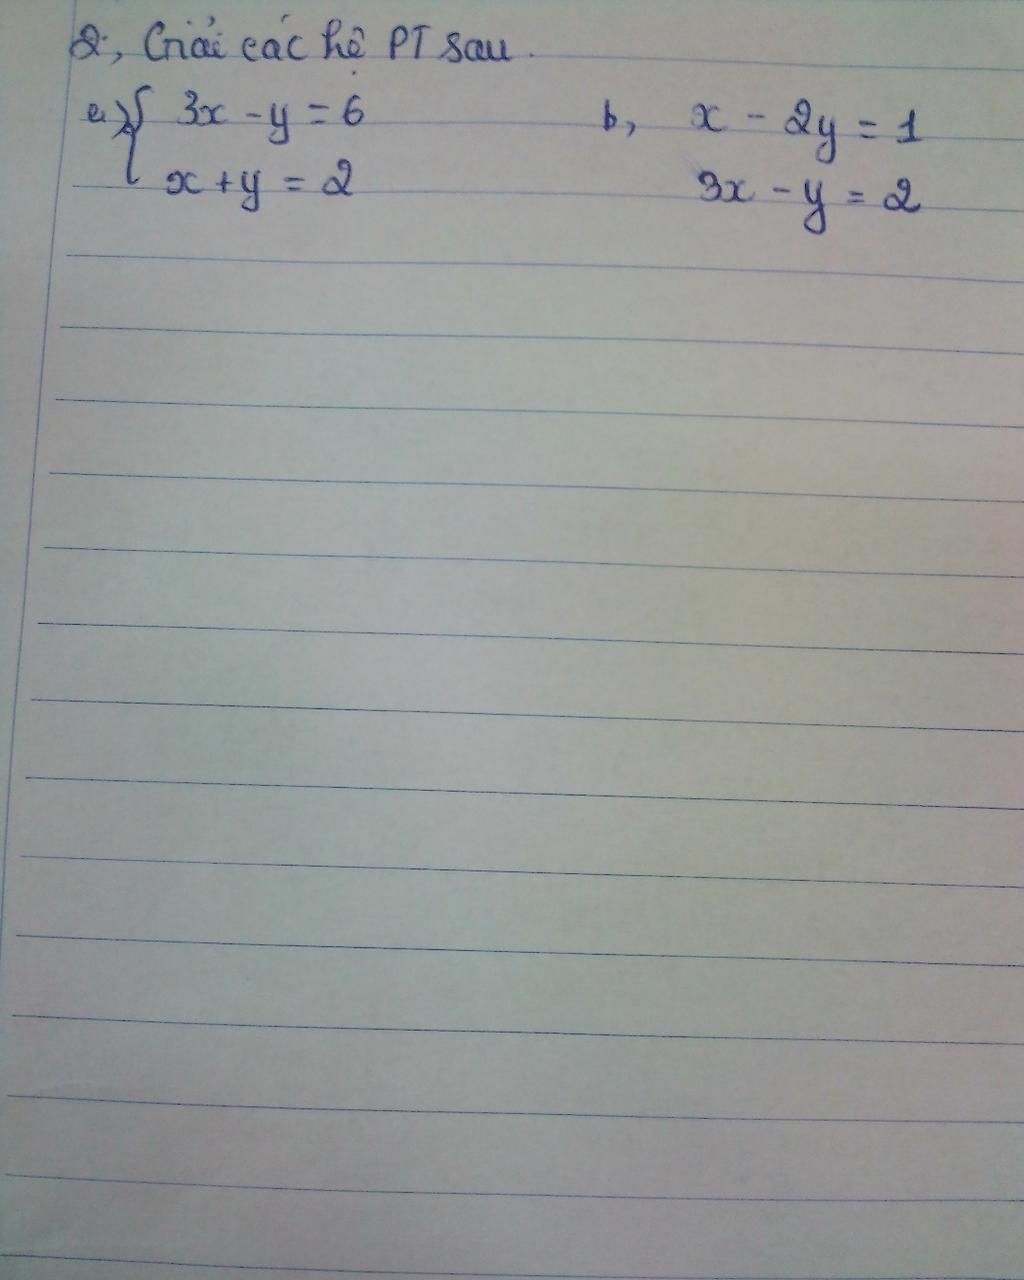 2, Giải các hệ PT sau.
a, { 3x - y = 6 b, x - 2y = 1
x + y = 2 3x - y = 2